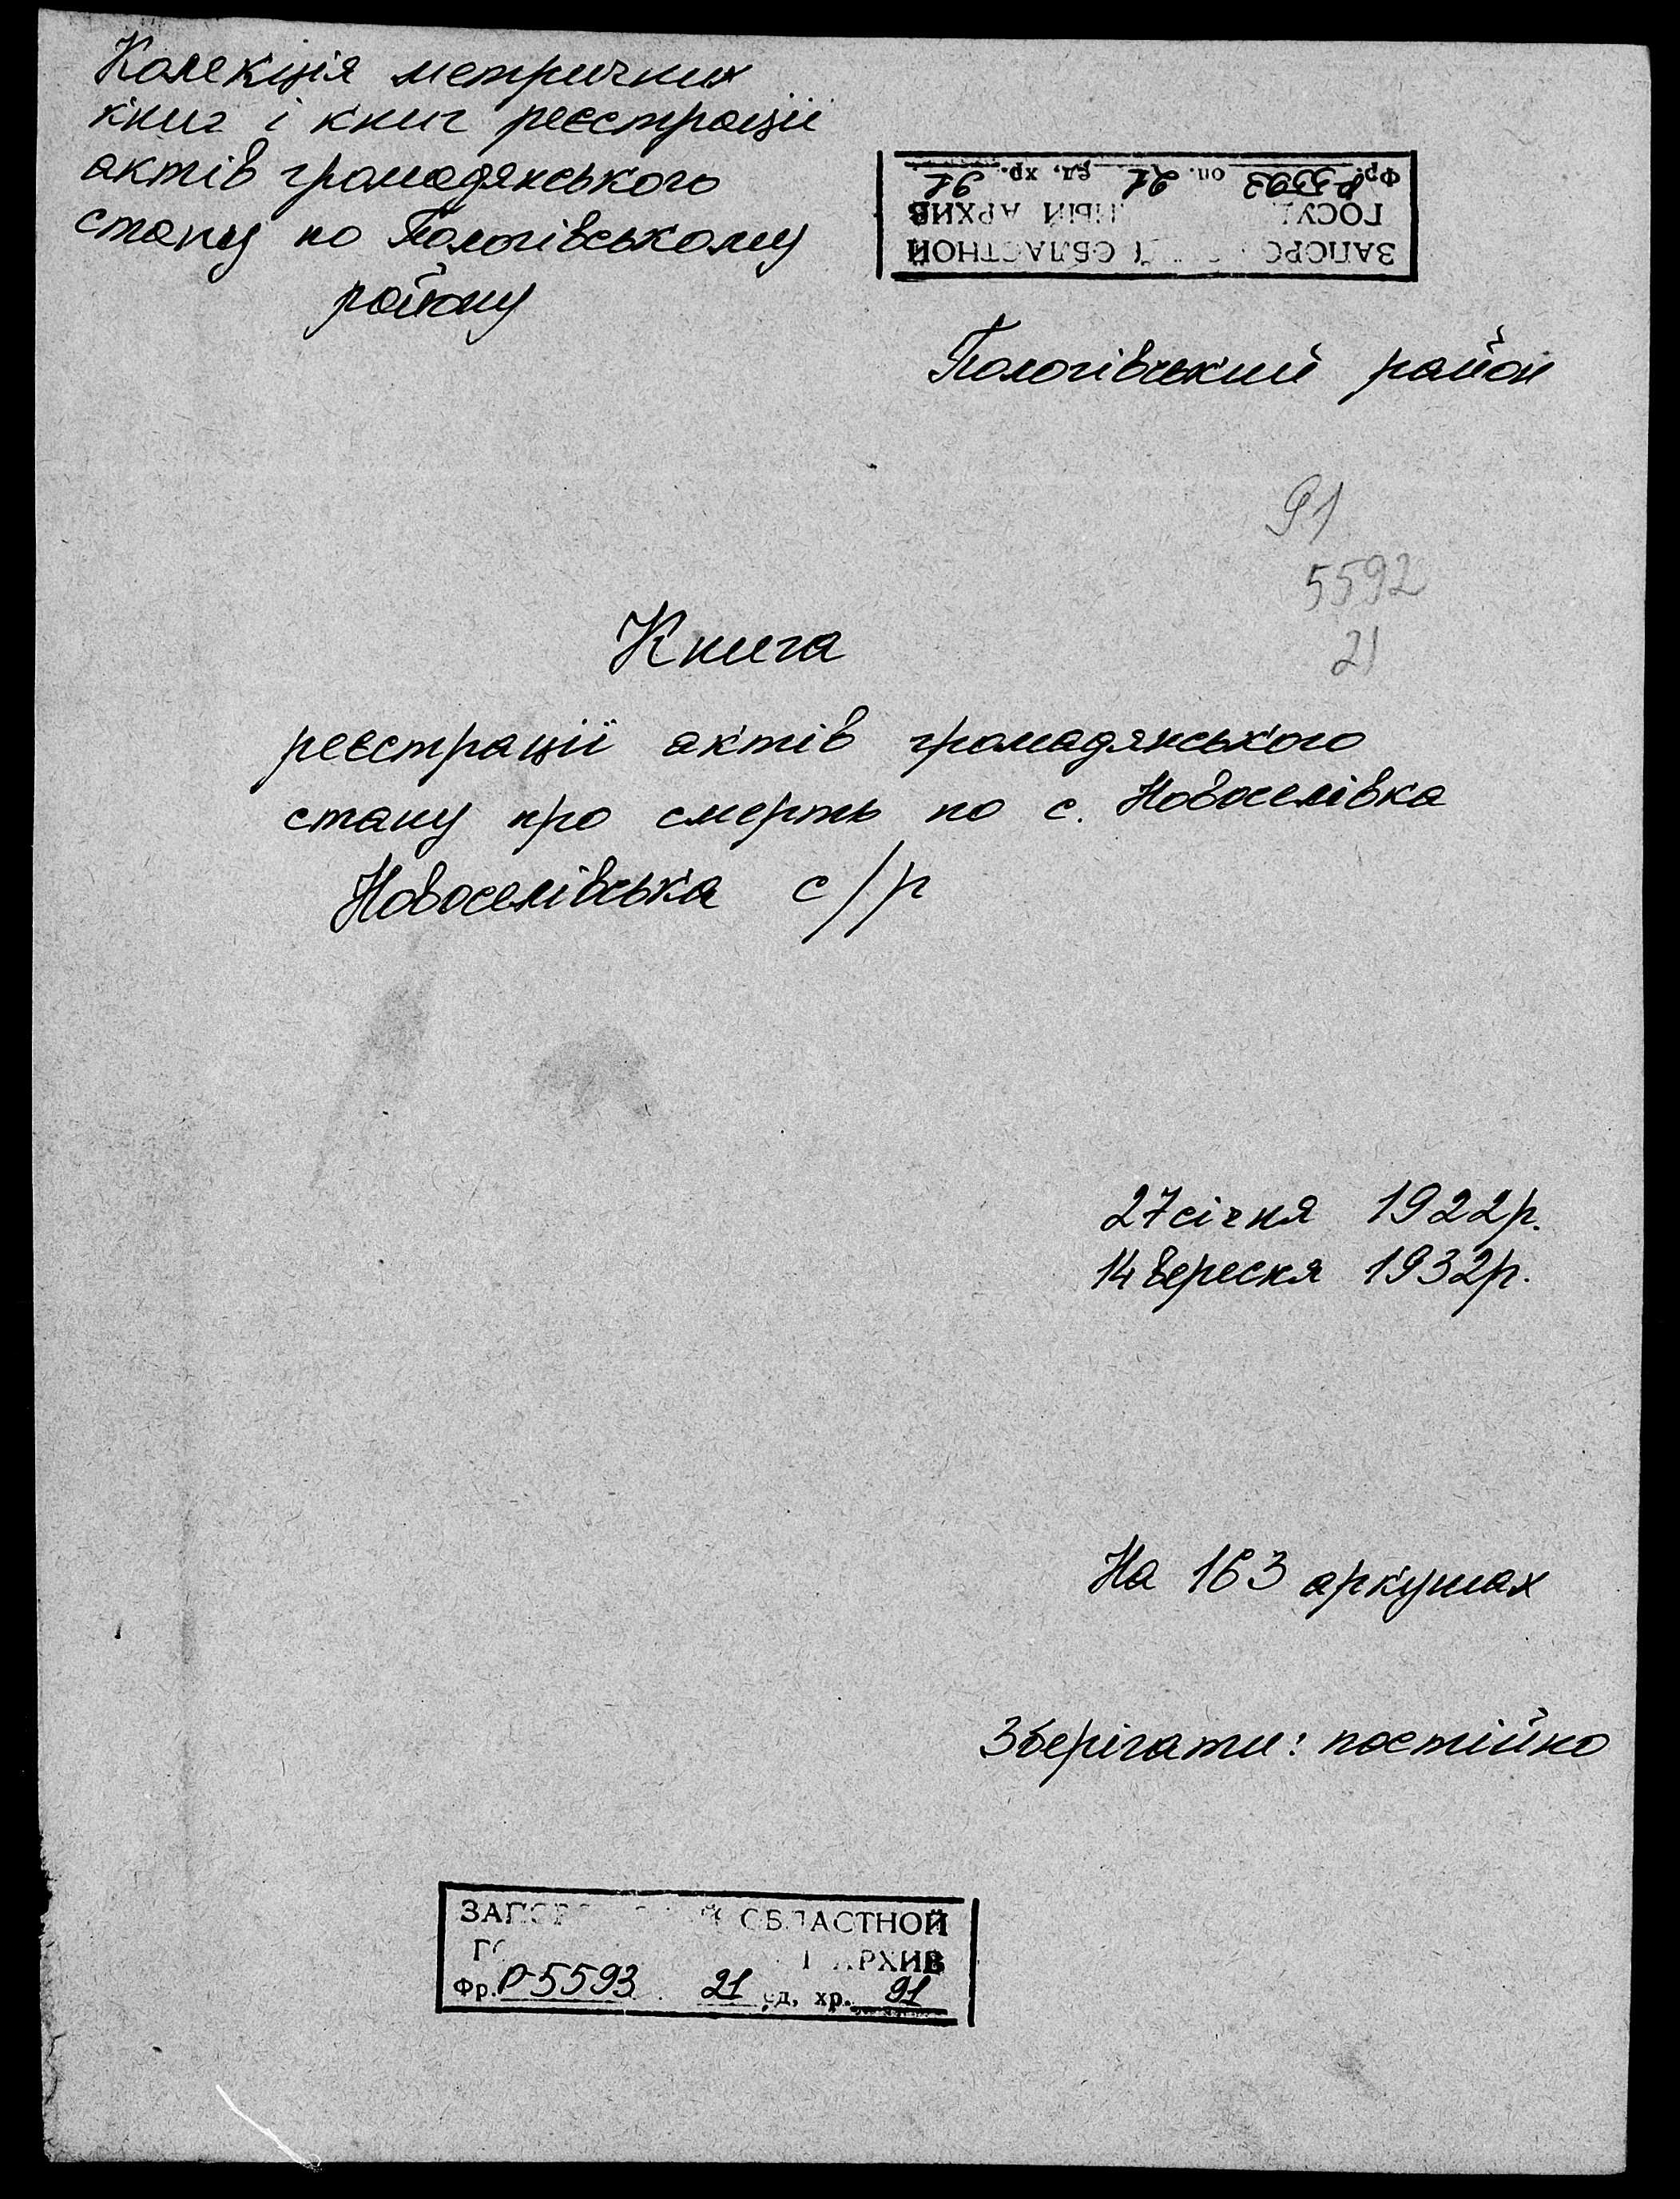 Колекція метричних
книг і книг реєстрації
актів громадянського
стану по Пологівському
району
ЗАПОРС ОБЛАСТНОЙ
ГОСУ НЫЙ АРХИВ
Фр. Р5593 оп. 21 ед. хр. 91
Пологівський район
91
5592
21
Книга
реєстрації актів громадянського
стану про смерть по с. Новоселівка
Новоселівська с/р
27 січня 1922р.
14 вересня 1932р.
На 163 аркушах
Зберігати: постійно
ЗАПОР ОБЛАСТНОЙ
АРХИВ
Фр. Р-5593 21 ед. хр. 91